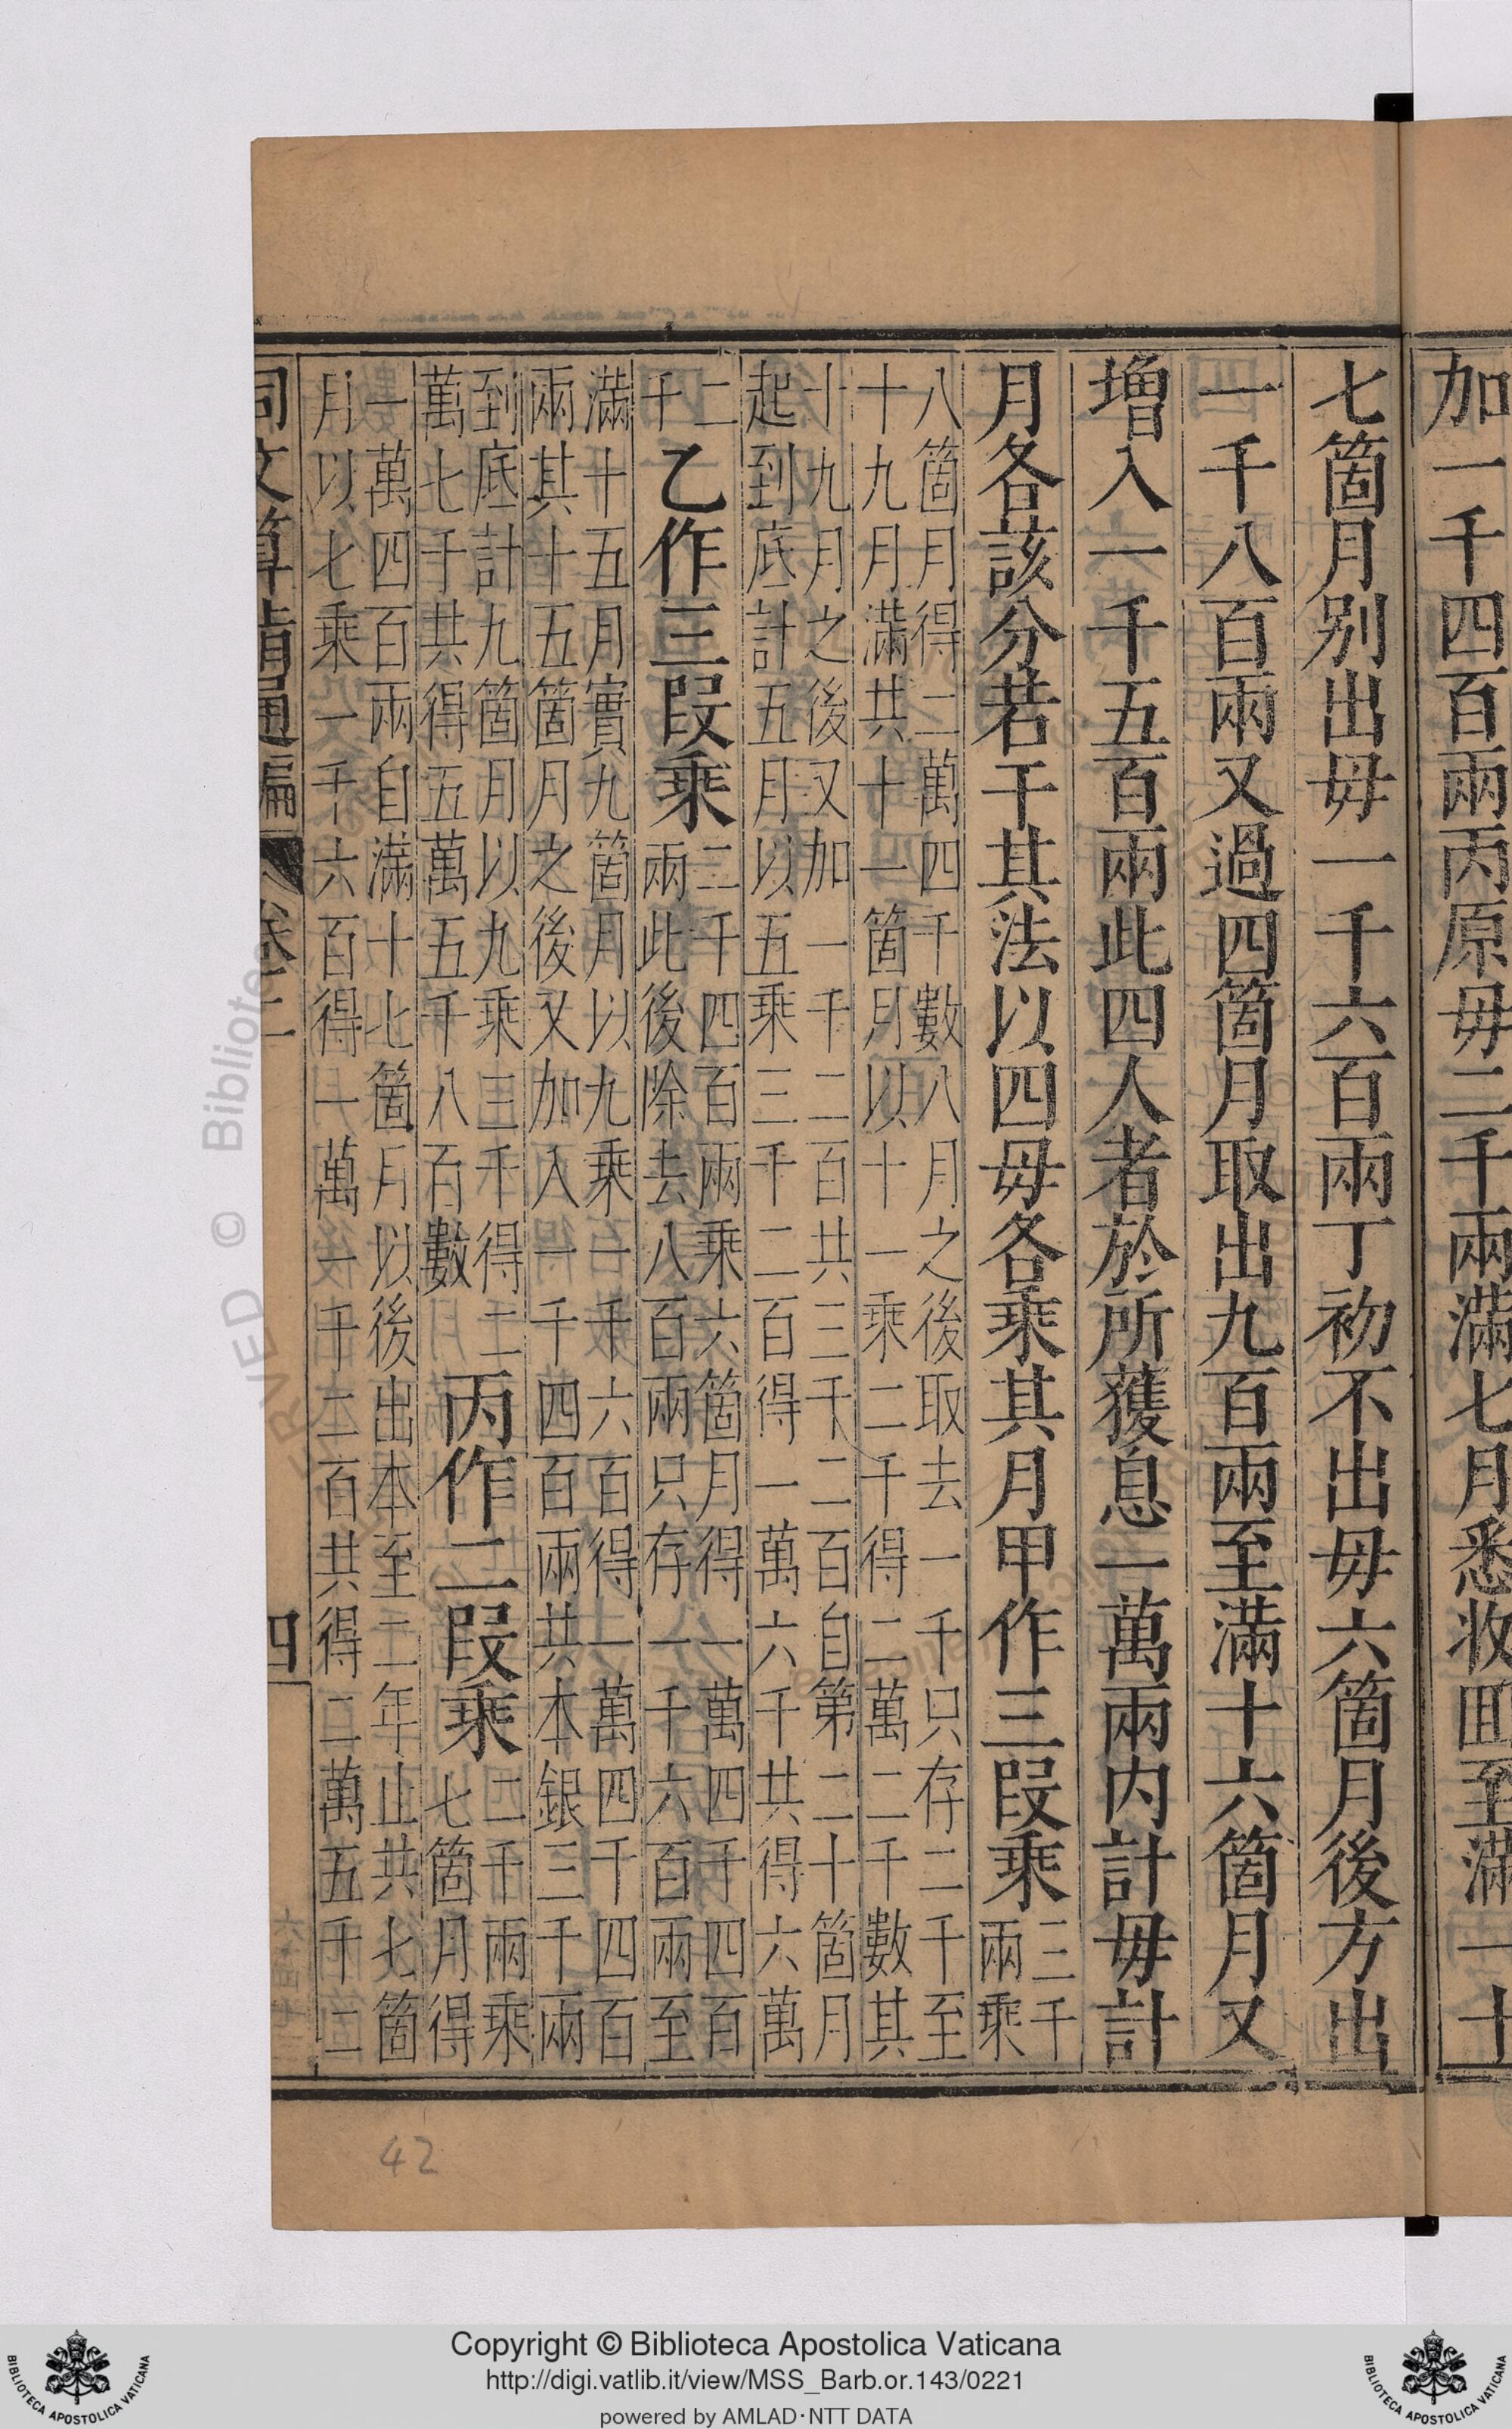 加一千四百兩丙原毋二千兩滿七月悉收囬至滿一十
七箇月别出毋一千六百兩丁初不出毋六箇月後方出
一千八百兩又過四箇月取出九百兩至滿十六箇月又
增入一千五百兩此四人者於所獲息一萬兩内計毋計
月各該分若干其法以四毋各乘其月甲作三段乘三千
兩乘
八箇月得二萬四千數八月之後取去一千只存二千至
十九月滿共十一箇月以十一乘二千得二萬二千數其
十九月之後又加一千二百共三千二百自第二十箇月
起到底計五月以五乘三千二百得一萬六千共得六萬
二
千
乙作三段乘
二千四百兩乘六箇月得一萬四千四百
兩此後除去八百兩只存一千六百兩至
滿十五月實九箇月以九乘一千六百得一萬四千四百
兩其十五箇月之後又加入一千四百兩共本銀三千兩
到底計九箇月以九乘三千得二
萬七千共得五萬五千八百數
丙作二段乘
二千兩乘
七箇月得
一萬四百兩自滿十七箇月以後出本至二年止共七箇
月以七乘一千六百得一萬一千二百共得二萬五千二
同文算指通編
卷二
四
42
Copyright © Biblioteca Apostolica Vaticana
http://digi.vatlib.it/view/MSS_Barb.or.143/0221
powered by AMLAD·NTT DATA
BIBLIOTECA APOSTOLICA VATICANA
BIBLIOTECA APOSTOLICA VATICANA